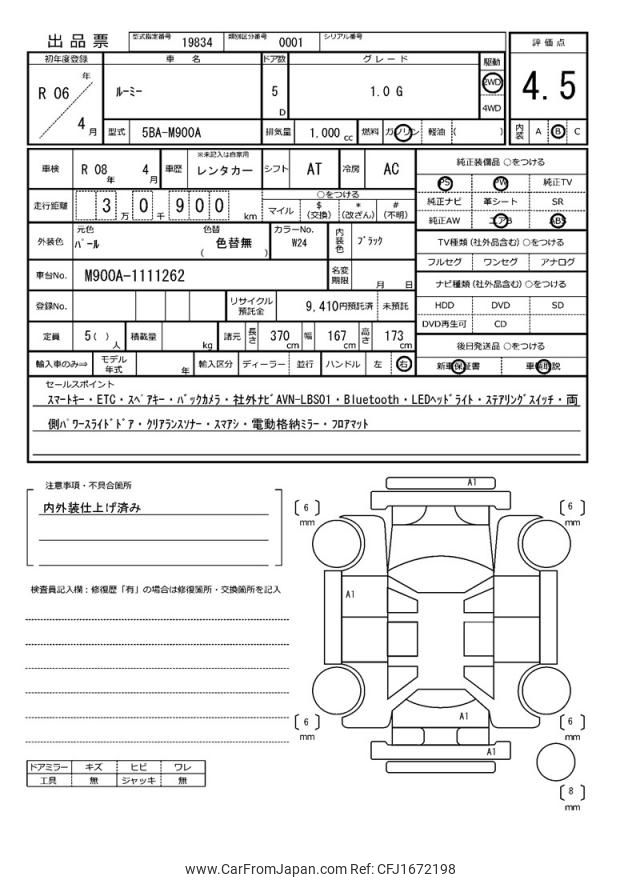 出品票 型式指定番号 19834 類別区分番号 0001 シリアル番号
初年度登録 車名 ドア数 グレード 駆動 評価点
R 06 年 4 月 ルーミー 5 D 1.0 G 2WD 4WD 4.5
型式 5BA-M900A 排気量 1.000 cc 燃料 ガソリン 軽油 ( ) 内装 A B C
車検 R 08 年 4 月 車歴 ※未記入は自家用 レンタカー シフト AT 冷房 AC
走行距離 3 万 0 千 9 0 0 km ○をつける マイル $ (交換) * (改ざん) # (不明)
外装色 元色 パール 色替 色替無 ( ) カラーNo. W24 内装色 ブラック
車台No. M900A-1111262 名変期限 月 日
登録No. リサイクル預託金 9,410円預託済 未預託
定員 5( ) 人 積載量 kg 諸元 長さ 370 cm 幅 167 cm 高さ 173 cm
輸入車のみ⇒ モデル年式 年 輸入区分 ディーラー 並行 ハンドル 左 右
純正装備品 ○をつける
PS PW 純正TV
純正ナビ 革シート SR
純正AW エアB ABS
TV種類(社外品含む)○をつける
フルセグ ワンセグ アナログ
ナビ種類(社外品含む)○をつける
HDD DVD SD
DVD再生可 CD
後日発送品 ○をつける
新車保証書 車輌取説
セールスポイント
スマートキー・ETC・スペアキー・バックカメラ・社外ナビAVN-LBS01・Bluetooth・LEDヘッドライト・ステアリングスイッチ・両
側パワースライドドア・クリアランスソナー・スマアシ・電動格納ミラー・フロアマット
注意事項・不具合箇所
内外装仕上げ済み
検査員記入欄:修復歴「有」の場合は修復箇所・交換箇所を記入
A1
6 mm
6 mm
A1
A1
6 mm
6 mm
A1
8 mm
ドアミラー キズ ヒビ ワレ
工具 無 ジャッキ 無
www.CarFromJapan.com Ref: CFJ1672198